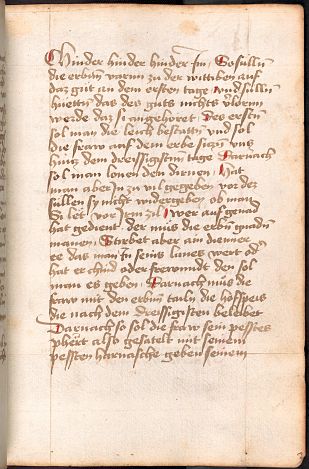 hinder hinder hinder Im So sullen
die erben varnn zu der wittiben auf
daz gut an dem ersten tage Und sullen
huetten das des guts nichts vlorenn
werde daz si angehoret Des ersten
sol man die leich bestatten vnd sol
die fraw auf dem erbe siczen vnc
hincz dem dreissigisten tage Darnach
sol man lonen den dienen Hat
man aber In zu vil gegeben vor dez
sullen sy nicht widergeben ob man
Si let vor Irem zil Wer auf genad
hat gedient der mus die erben gnaden
manen Sterbet aber am diener
ee das man Im seins lones wert od
hat er chind oder frewndt den sol
man es geben Darnach mus die
fraw mit den erben tailn die hofspeis
die nach dem dreissigisten beleibet
Darnach so sol die fraw sein pesstes
phert also gesatelt mit seinem
pessten harnasche geben seinem